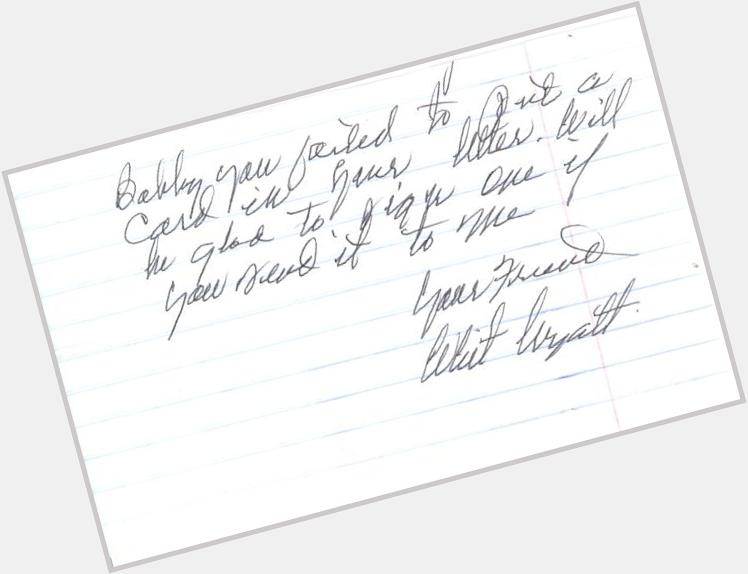 Bobby you failed to put a
card in your letter. Will
be glad to sign one if
you send it to me
Your Friend
Whit Wyatt.